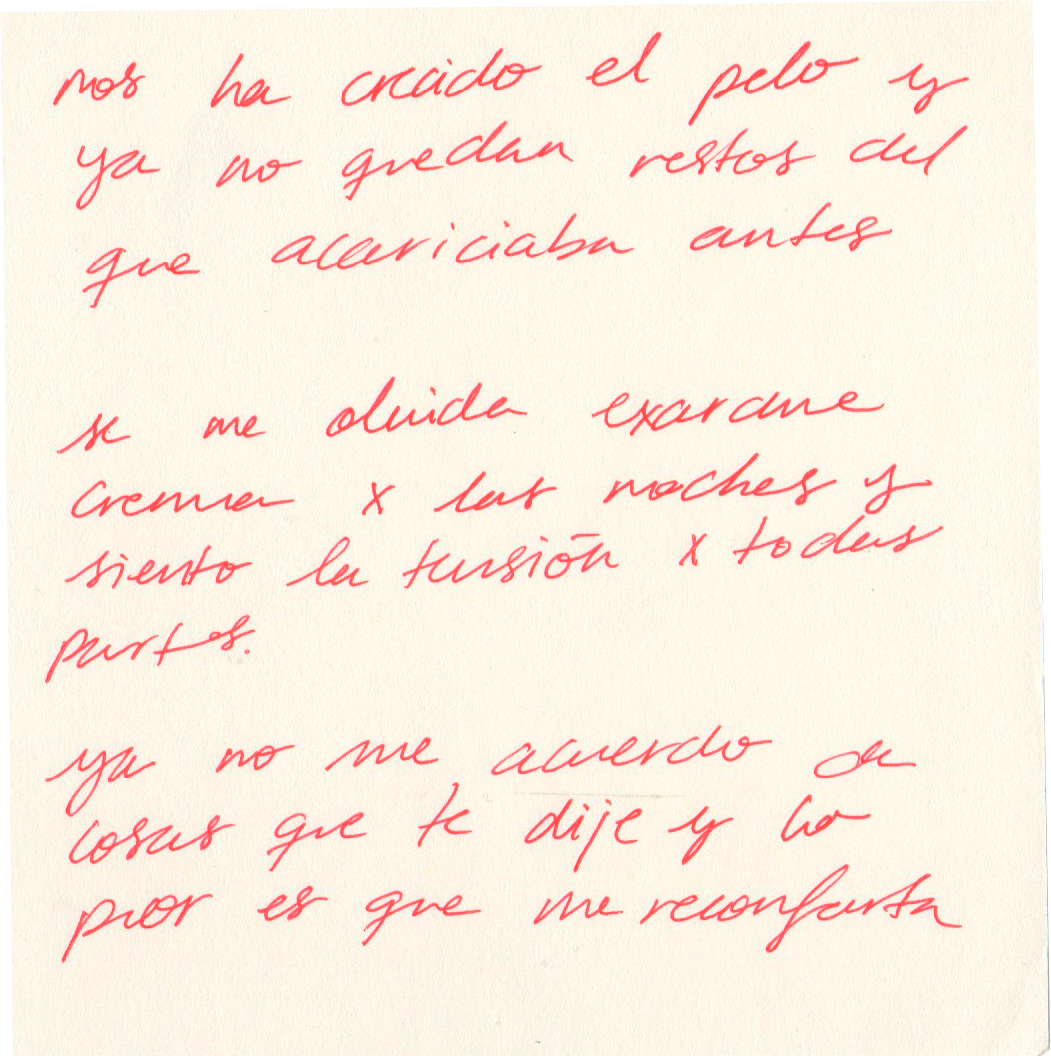 nos ha crecido el pelo y
ya no quedan restos del
que acariciaba antes
se me olvida echarme
crema x las noches y
siento la tensión x todas
partes.
ya no me acuerdo de
cosas que te dije y lo
peor es que me reconforta